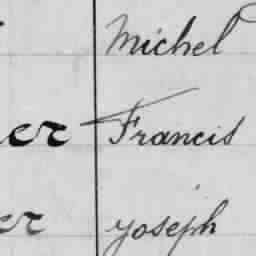 Michel
er Francis
er Joseph